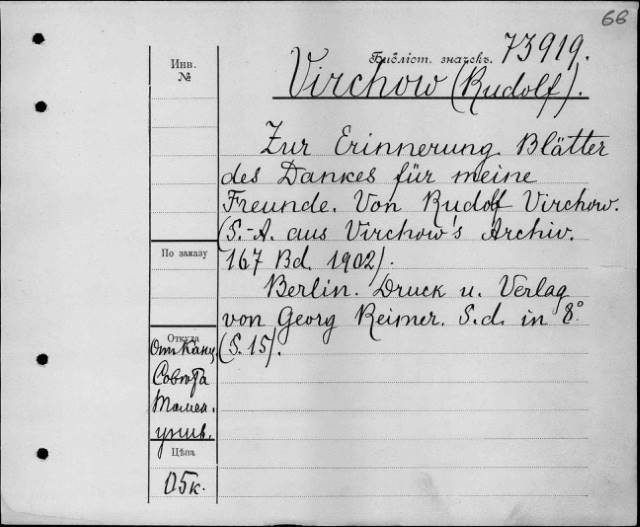 66
Библіот. значекъ. 73919.
Инв.
№
Virchow (Rudolf).
Zur Erinnerung. Blätter
des Dankes für meine
Freunde. Von Rudolf Virchow.
(S.-A. aus Virchow's Archiv.
167 Bd. 1902).
По заказу
Berlin. Druck u. Verlag
von Georg Reimer. S.d. in 8°
(S. 15).
Откуда
От Канц.
Совѣта
Томск.
унив.
Цѣна
05к.